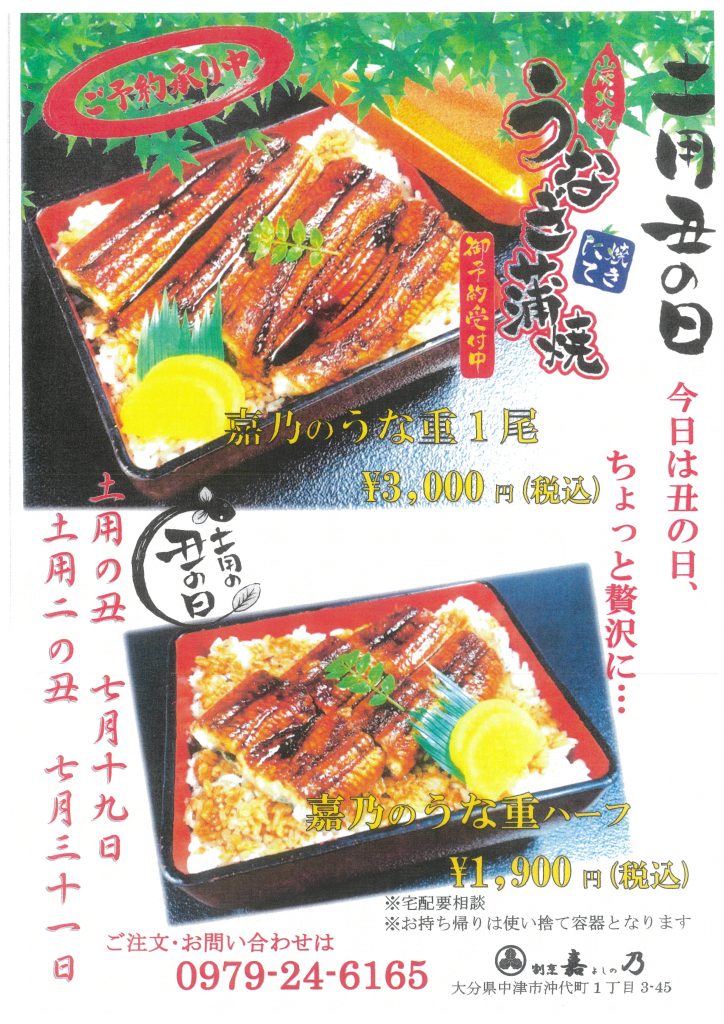 土用丑の日
炭火焼
うなぎ蒲焼
焼きたて
御予約受付中
ご予約承り中
今日は丑の日、
ちょっと贅沢に…
嘉乃のうな重１尾
¥3,000 円(税込)
土用の
丑の日
土用の丑　七月十九日
土用二の丑　七月三十一日
嘉乃のうな重ハーフ
¥1,900 円(税込)
※宅配要相談
※お持ち帰りは使い捨て容器となります
ご注文・お問い合わせは
0979-24-6165
割烹 嘉よしの乃
大分県中津市沖代町１丁目 3-45